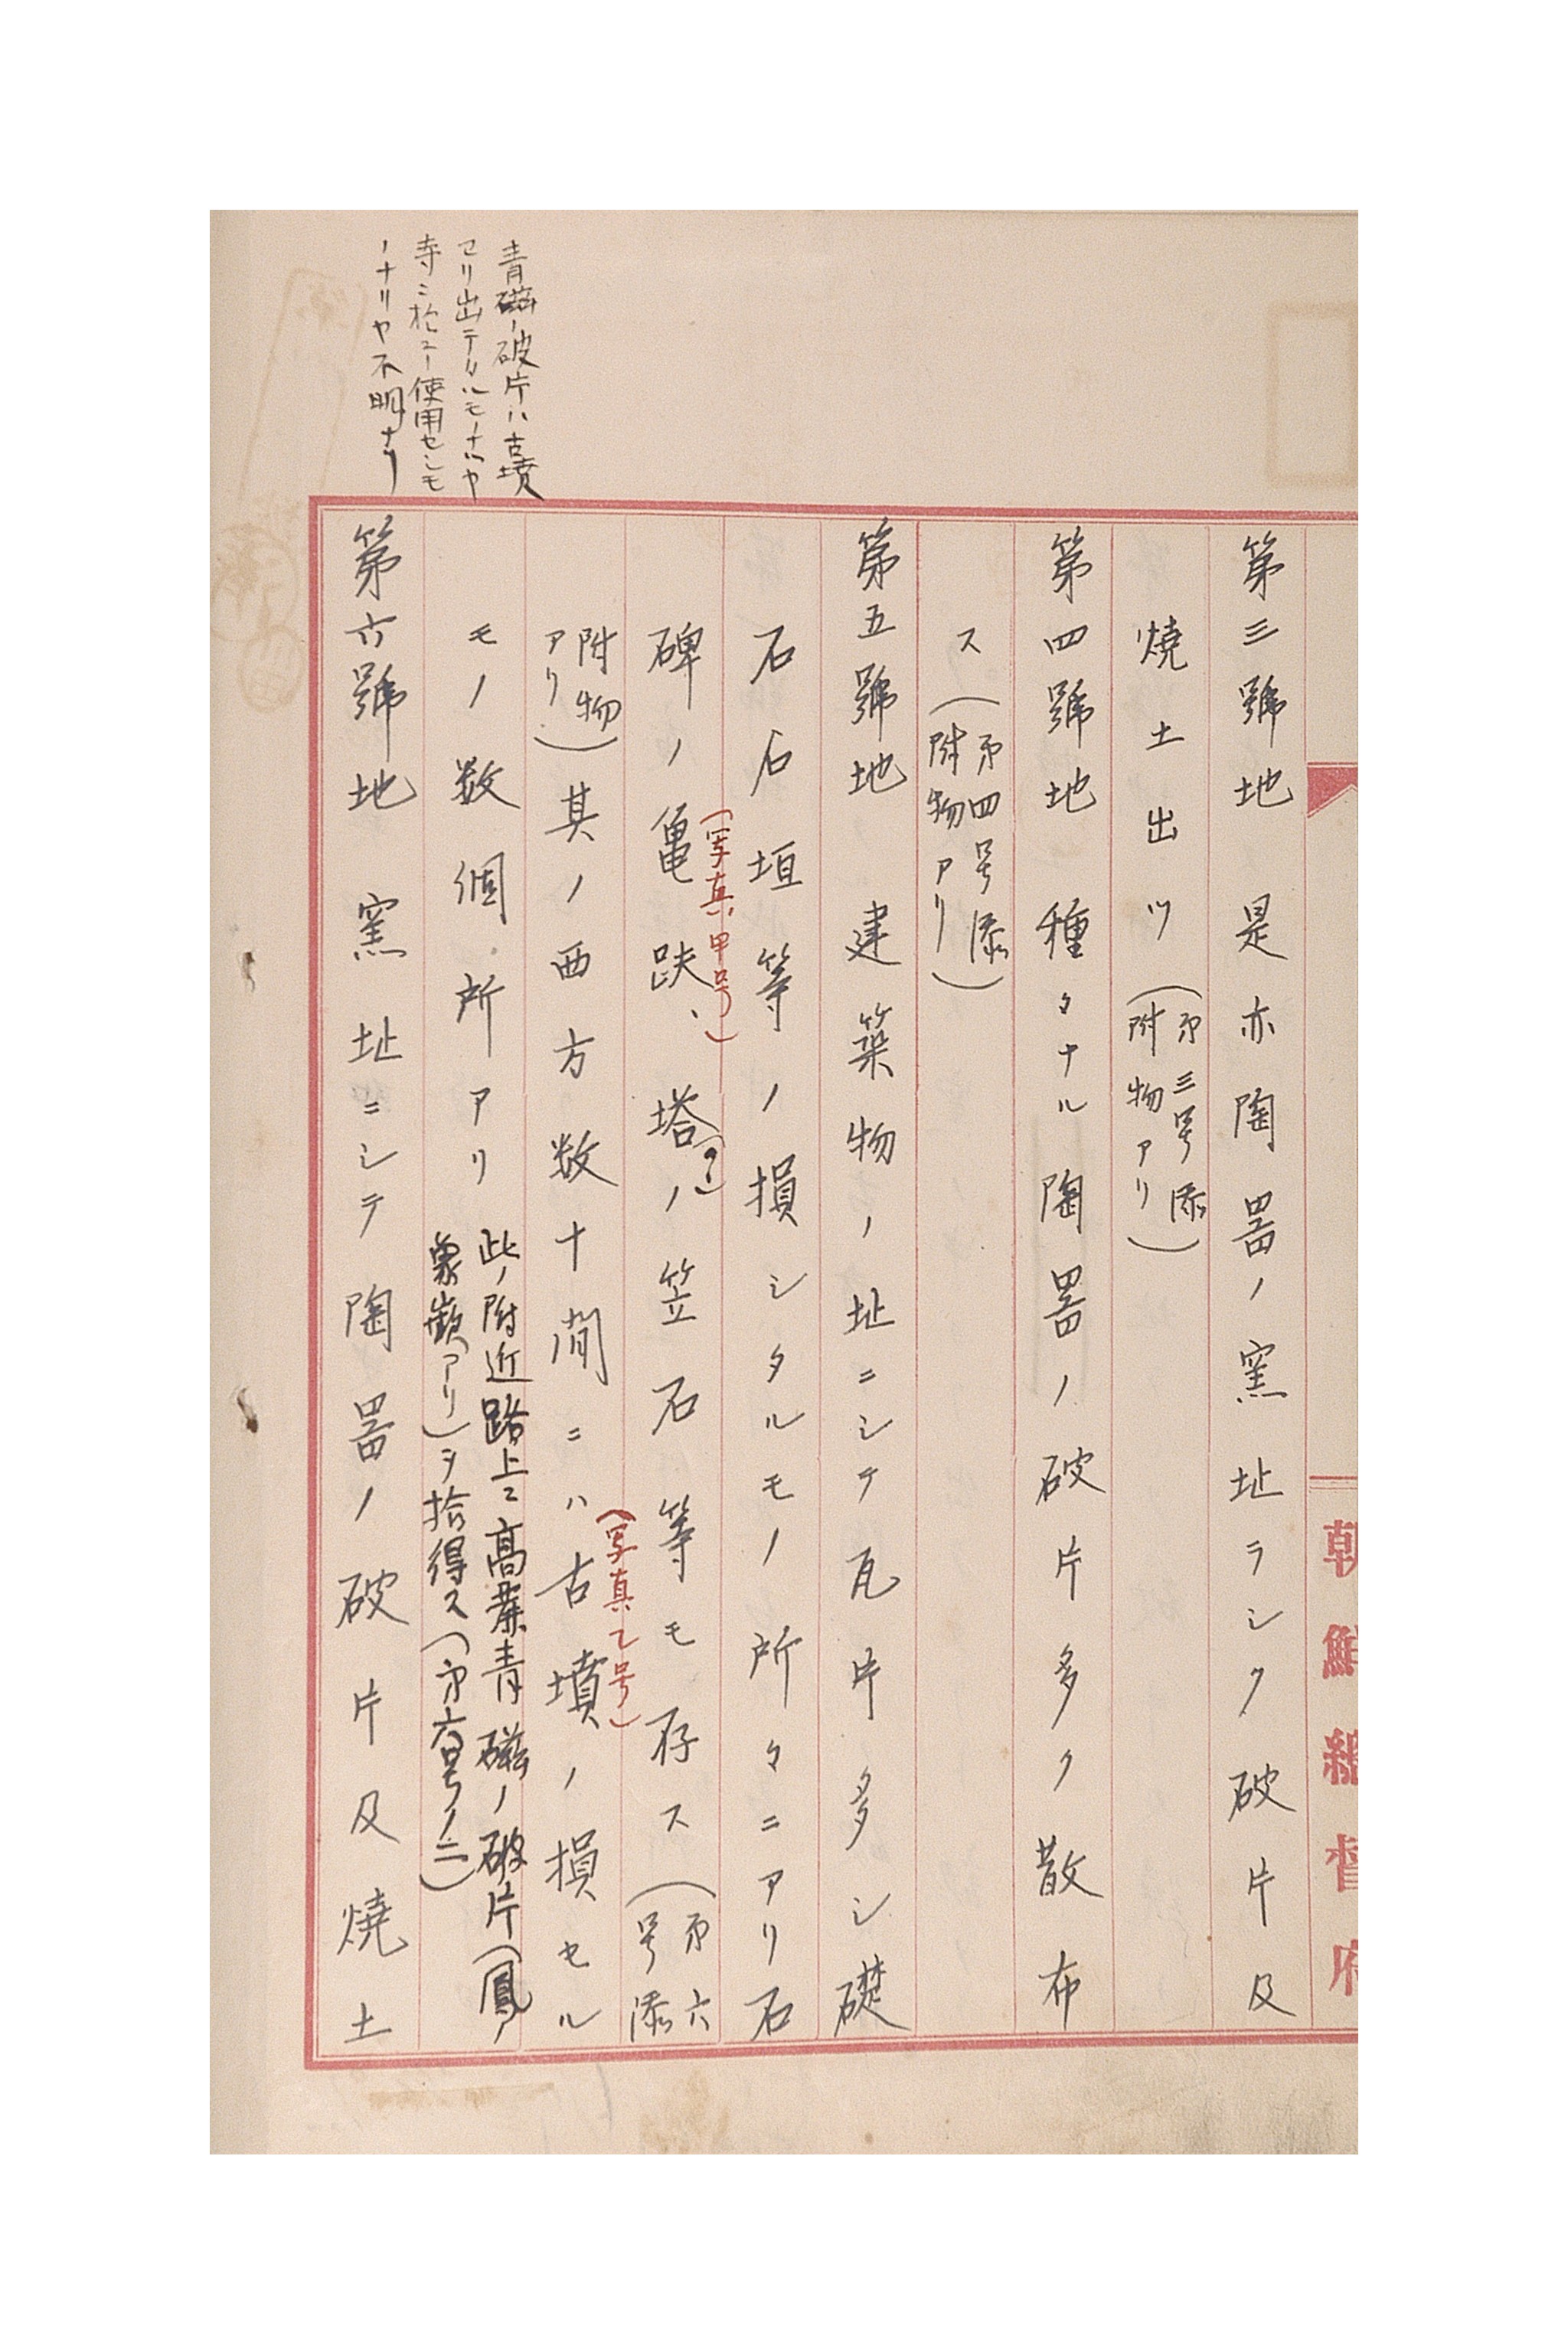 朝鮮總督府
第三號地 是亦陶器ノ窯址ラシク破片及
焼土出ツ(第三号添附物アリ)
第四號地 種々ナル陶器ノ破片多ク散布
ス(第四号添附物アリ)
第五號地 建築物ノ址ニシテ瓦片多シ礎
石石垣等ノ損シタルモノ所々ニアリ石
(写真甲号)
碑ノ亀趺、塔ノ笠石等モ存ス(第六号添
(写真乙号)
附物アリ)其ノ西方数十間ニハ古墳ノ損セル
モノ数個所アリ 此ノ附近路上ニ高麗青磁ノ破片(鳳ノ
象嵌アリ)ヲ拾得ス(第六号ノ二)
第六號地 窯址ニシテ陶器ノ破片及焼土
青磁ノ破片ハ古墳
ヨリ出テタルモノナルヤ
寺ニ於テ使用セシモ
ノナリヤ不明ナリ